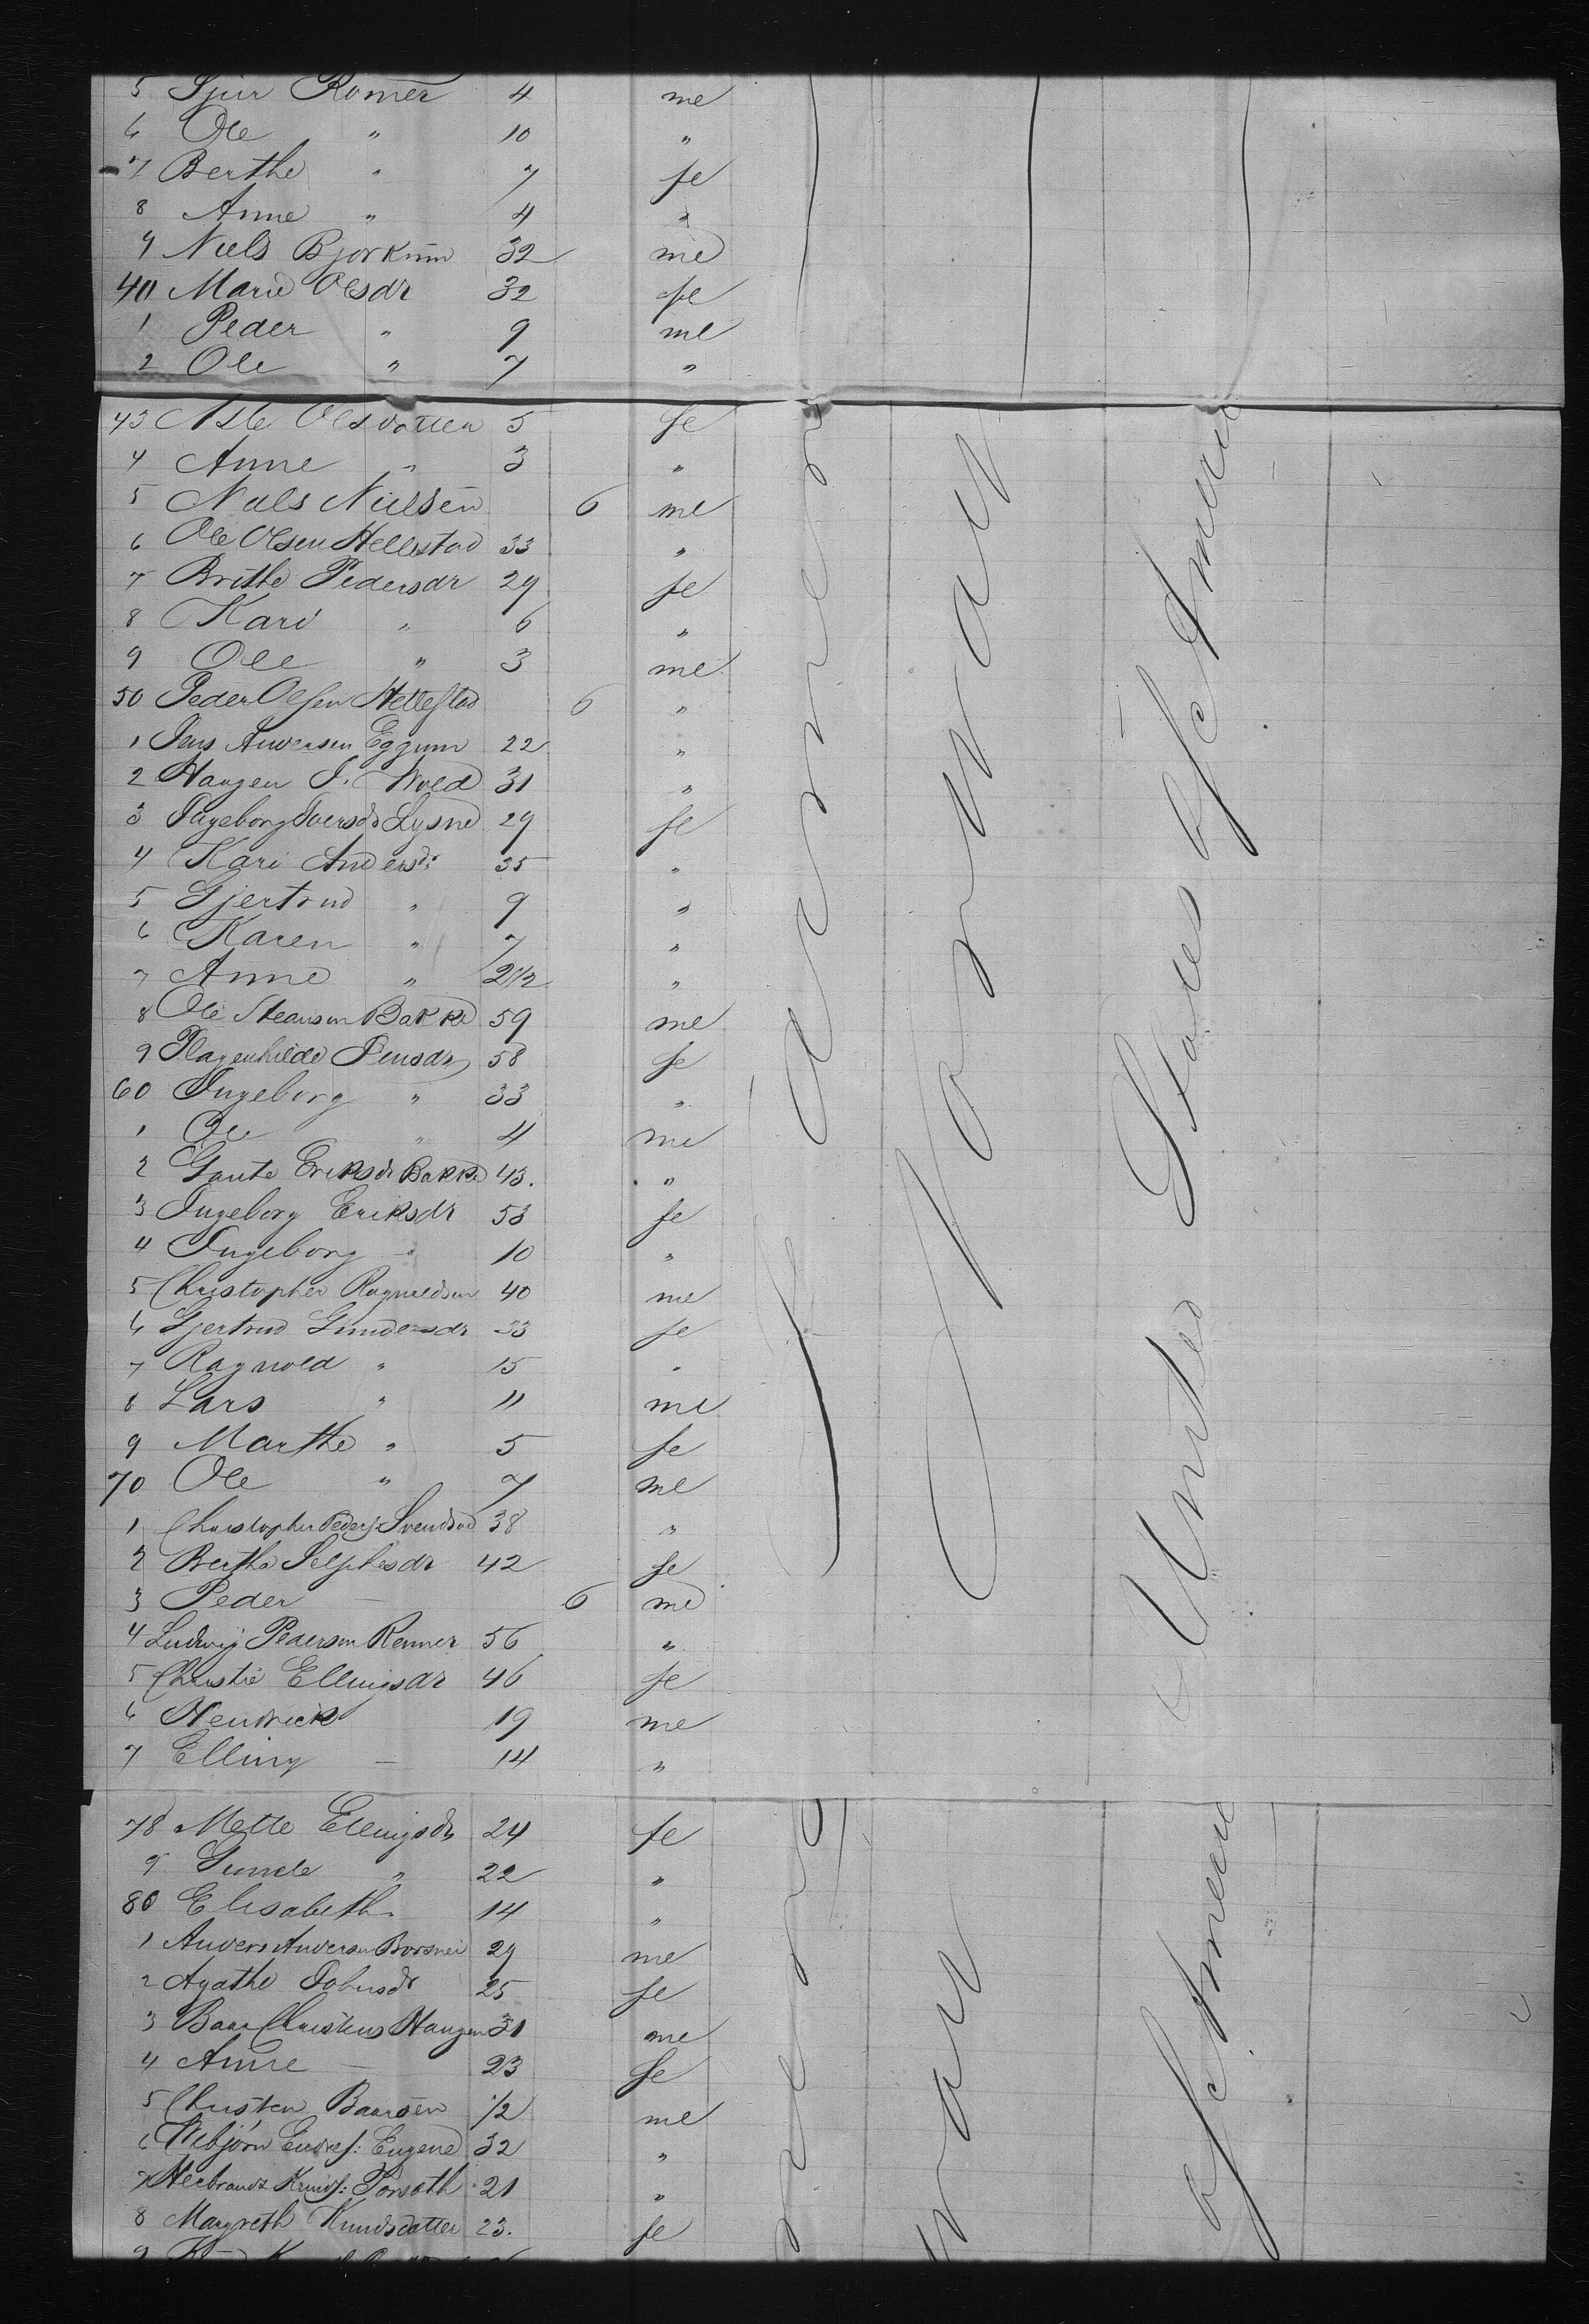 5 Sjur Romer 4 me
6 Ole " 10 "
7 Berthe " 7 fe
8 Anne " 4 "
9 Niels Bjorkum 32 me
40 Marie Olsdr 32 fe
1 Peder " 9 me
2 Ole " 7 "
43 Asle Olsdatter 5 fe
4 Anne " 3 "
5 Niels Nielsen 6 me
6 Ole Olsen Hellestad 33 "
7 Brithe Pedersdr 29 fe
8 Kari " 6 "
9 Ole " 3 me
50 Peder Olsen Hellestad 6 "
1 Jens Andersen Eggum 22 "
2 Haagen J. Wold 31 "
3 Ingeborg Iversdr Lysne 29 fe
4 Kari Andersdr 35 "
5 Gjertrud " 9 "
6 Karen " 7 "
7 Anne " 2 1/2 "
8 Ole Bakke 59 me
9 Jensdr 58 fe
60 Ingeborg " 33 "
1 Ole " 4 me
2 Gaute Eriksdr Bakke 43. "
3 Ingeborg Eriksdr 53 fe
4 Ingeborg " 10 "
5 Christopher Ragnvaldsen 40 me
6 Gjertrud Gundersdr 33 fe
7 Ragnvold " 15 "
8 Lars " 11 me
9 Marthe " 5 fe
70 Ole " 7 me
1 Christopher Peders 38 "
2 Berthe 42 fe
3 Peder — 6 me
4 Ludwig Pedersen Renner 56 "
5 Christie Ellingsdr 46 fe
6 Hendrick 19 me
7 Elling — 14 "
78 Mette Ellingsdr 24 fe
9 Gunele " 22 "
80 Elisabeth 14 "
1 Anders Andersen 29 me
2 Agathe Johnsdr 25 fe
3 Baar Christens Haugen 31 me
4 Anne — 23 fe
5 Christen Baarsen 1/2 me
6 Eugene 32 "
7 Knuds: 21 "
8 Margreth Knudsdatter 23. fe
Farmers
Norway
United States of America
of America